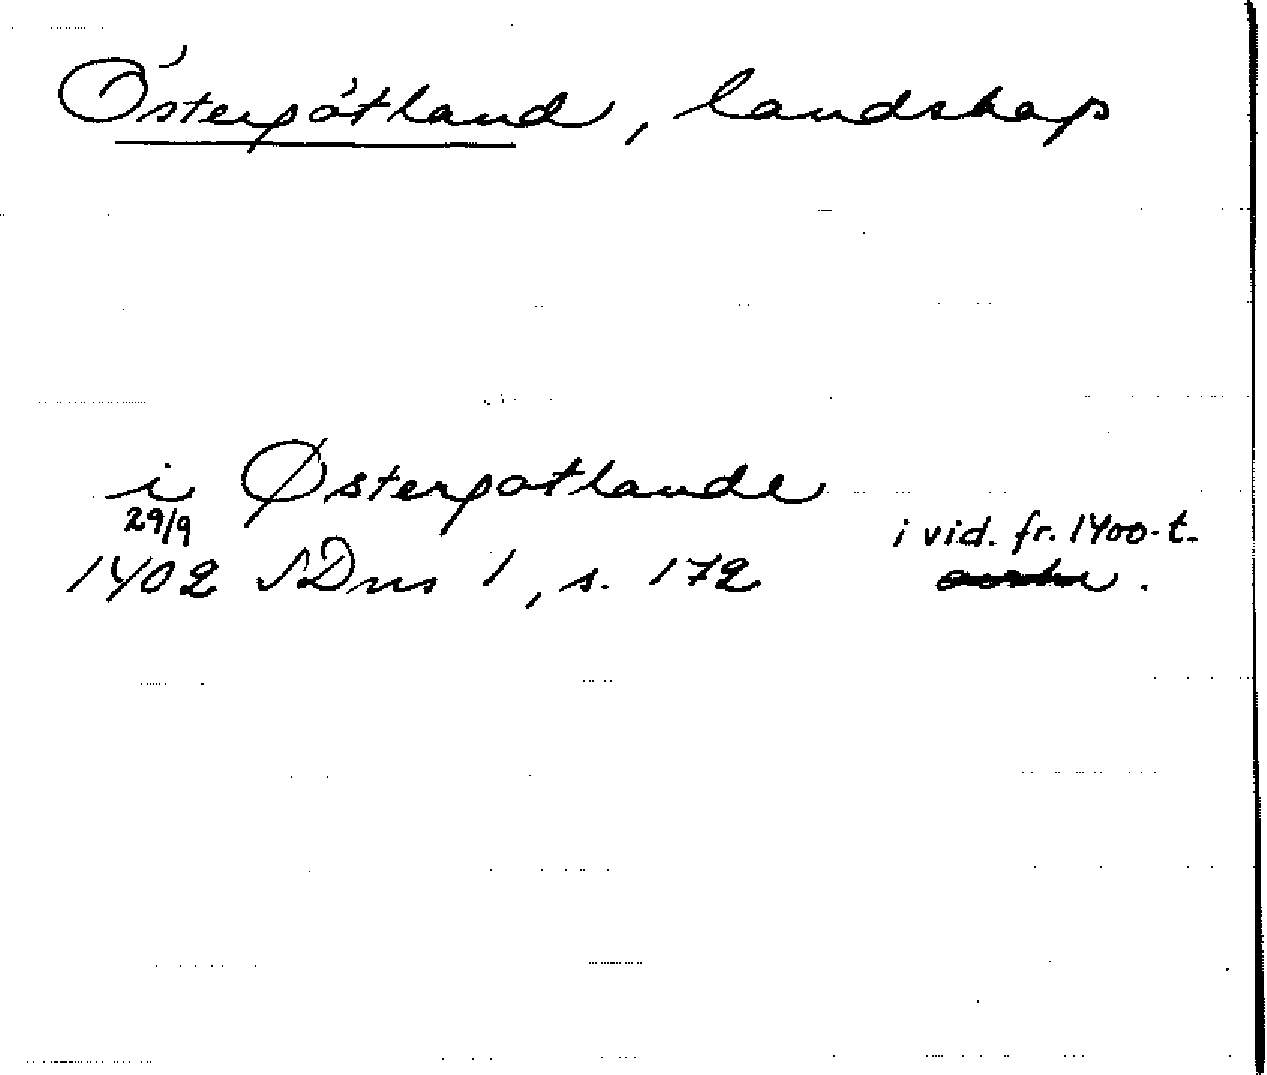 Östergötland, landskap
i Østergotlande
29/9 i vid. fr. 1400-t.
1402 SDns 1, s. 172 .